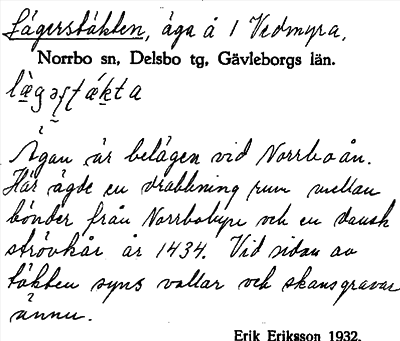 Lägerstäkten, äga å 1 Vedmyra,
Norrbo sn, Delsbo tg, Gävleborgs län.
lä̀gəʃtä́kta
Ägan är belägen vid Norrboån.
Här ägde en drabbning rum mellan
bönder från Norrbobyn och en dansk
strövkår år 1434. Vid sidan av
täkten syns vallar och skansgravar
ännu.
Erik Eriksson 1932.